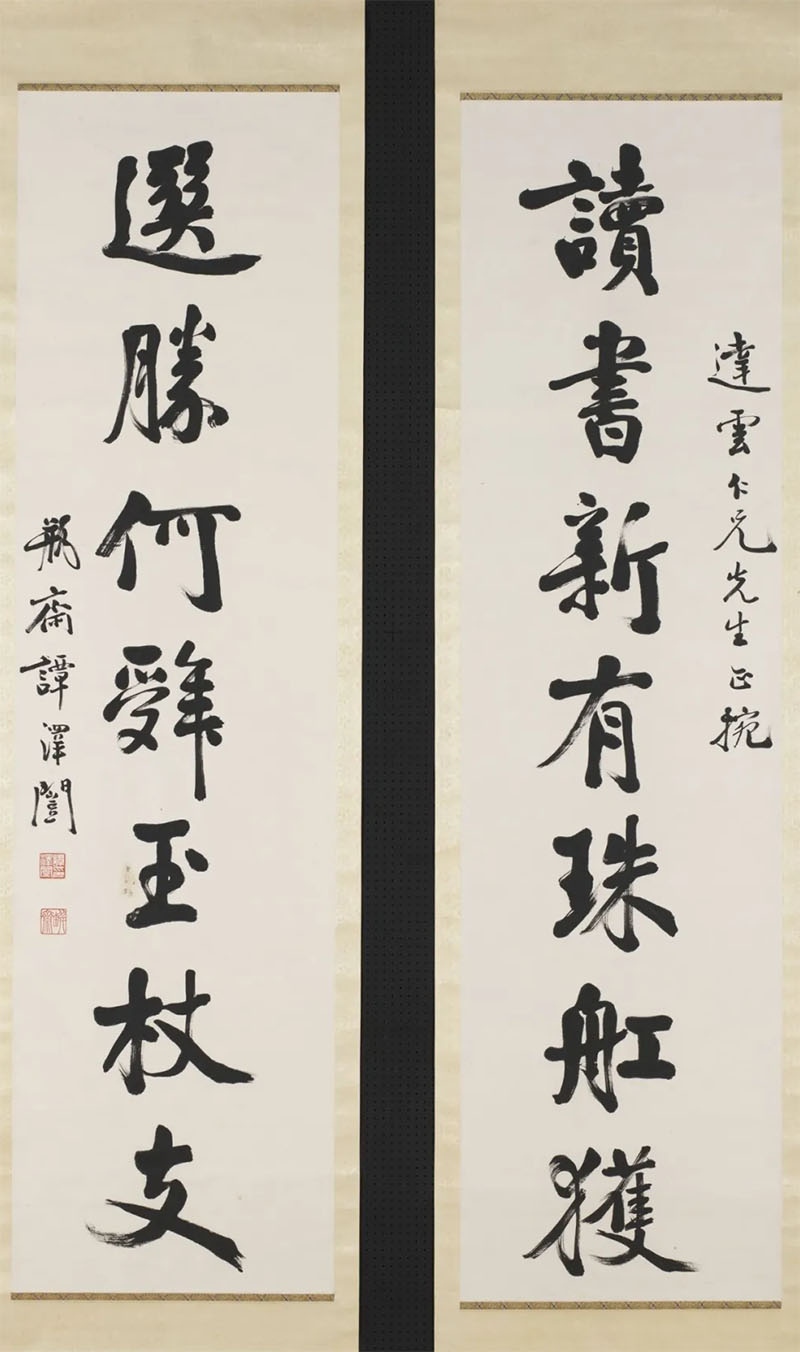 達雲仁兄先生正捥
讀書新有珠舡獲
選勝何辤玉杖支
瓶齋譚澤闓